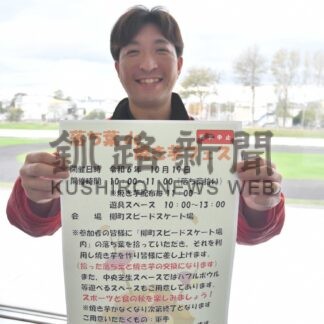 釧路新聞
KUSHIRO NEWS WEB
雨天中止
開催日時 令和6年 10月19日
開催時間 10:00~11:00
※焼き芋配布時 11:00~
遊具スペース 10:00~13:00
会場 柳町スピードスケート場
※参加者の皆様に「柳町スピードスケート場
内」の落ち葉を拾っていただき、それを利用
し焼き芋を作り皆様に差し上げます。
(拾った落ち葉と焼き芋の交換になります)
また、中央芝生スペースではバブルボウル
等遊べるスペースもご用意してあります。
スポーツと食の秋を楽しみましょう!
※焼き芋がなくなり次第終了となります
ご用意いただくもの:軍手